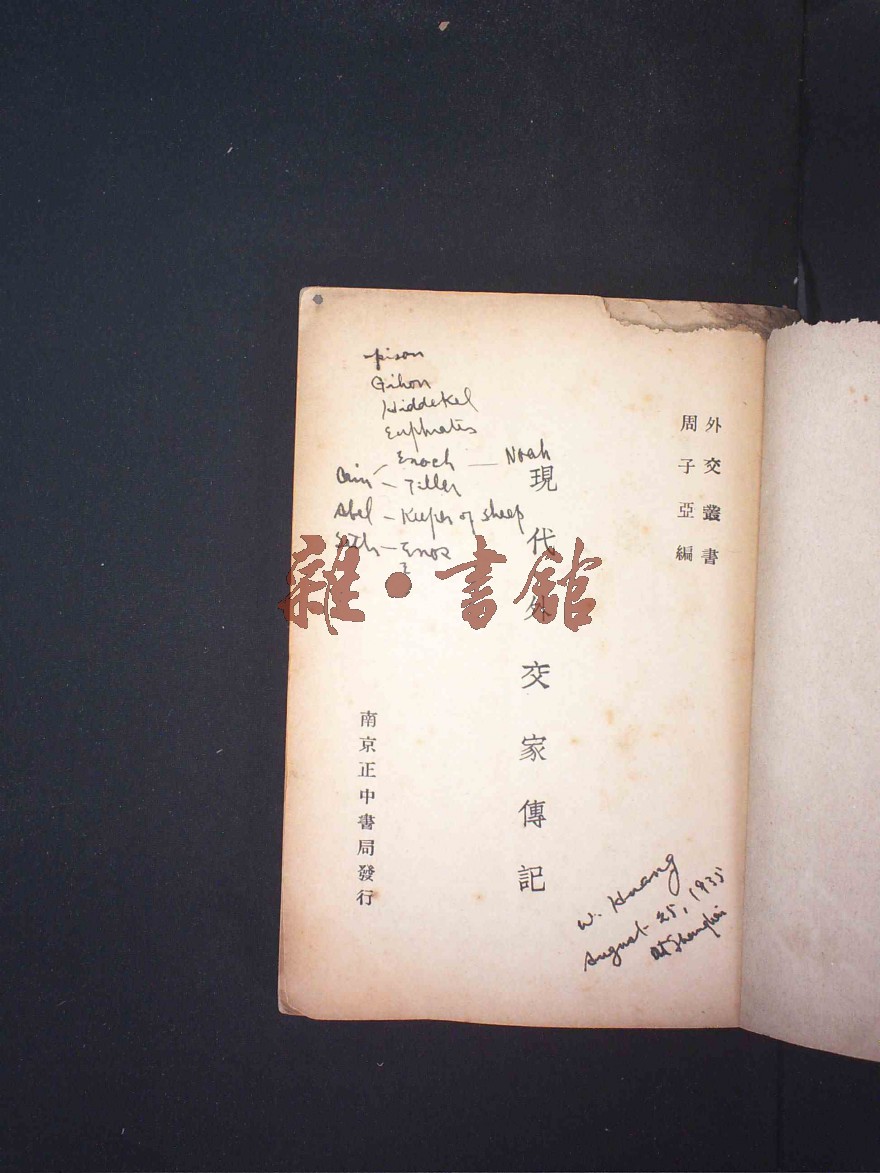 外交叢書
周子亞編
現代外交家傳記
南京正中書局發行
pison
Gihon
Hiddekel
Euphrates
Enoch — Noah
Cain — Tiller
Abel — Keeper of sheep
Seth — Enos
W. Huang
August 25, 1935
at Shanghai
雜·書館